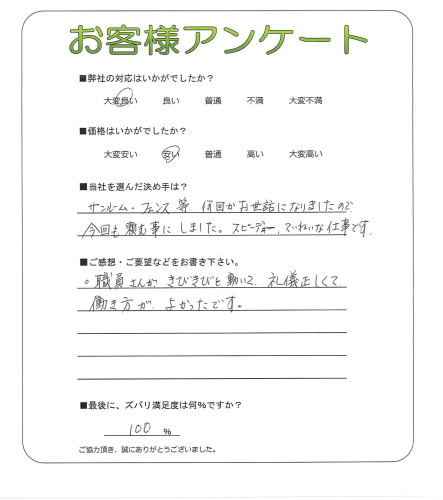 お客様アンケート
■弊社の対応はいかがでしたか？
大変良い 良い 普通 不満 大変不満
■価格はいかがでしたか？
大変安い 安い 普通 高い 大変高い
■当社を選んだ決め手は？
サンルーム・フェンス等、何回かお世話になりましたので
今回も頼む事にしました。スピーディー、ていねいな仕事です。
■ご感想・ご要望などをお書き下さい。
。職員さんが、きびきびと動いて、礼儀正しくて
働き方が、よかったです。
■最後に、ズバリ満足度は何％ですか？
100 ％
ご協力頂き、誠にありがとうございました。